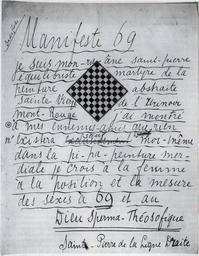 Manifeste 69
je suis mon-
âne saint-pierre
équilibriste
martyre de la
peinture
abstraite
Sainte Vierge
de l'Urinoir
Mont-Rouge
j'ai montré
à mes ennemis
n'existera
moi-même
dans la pi-pa-peinture mon-
diale je crois à la femme
à la position et la mesure
des sexes à 69 et au
Dieu Sperma-Théosofique
Saint-Pierre de la Ligne Droite